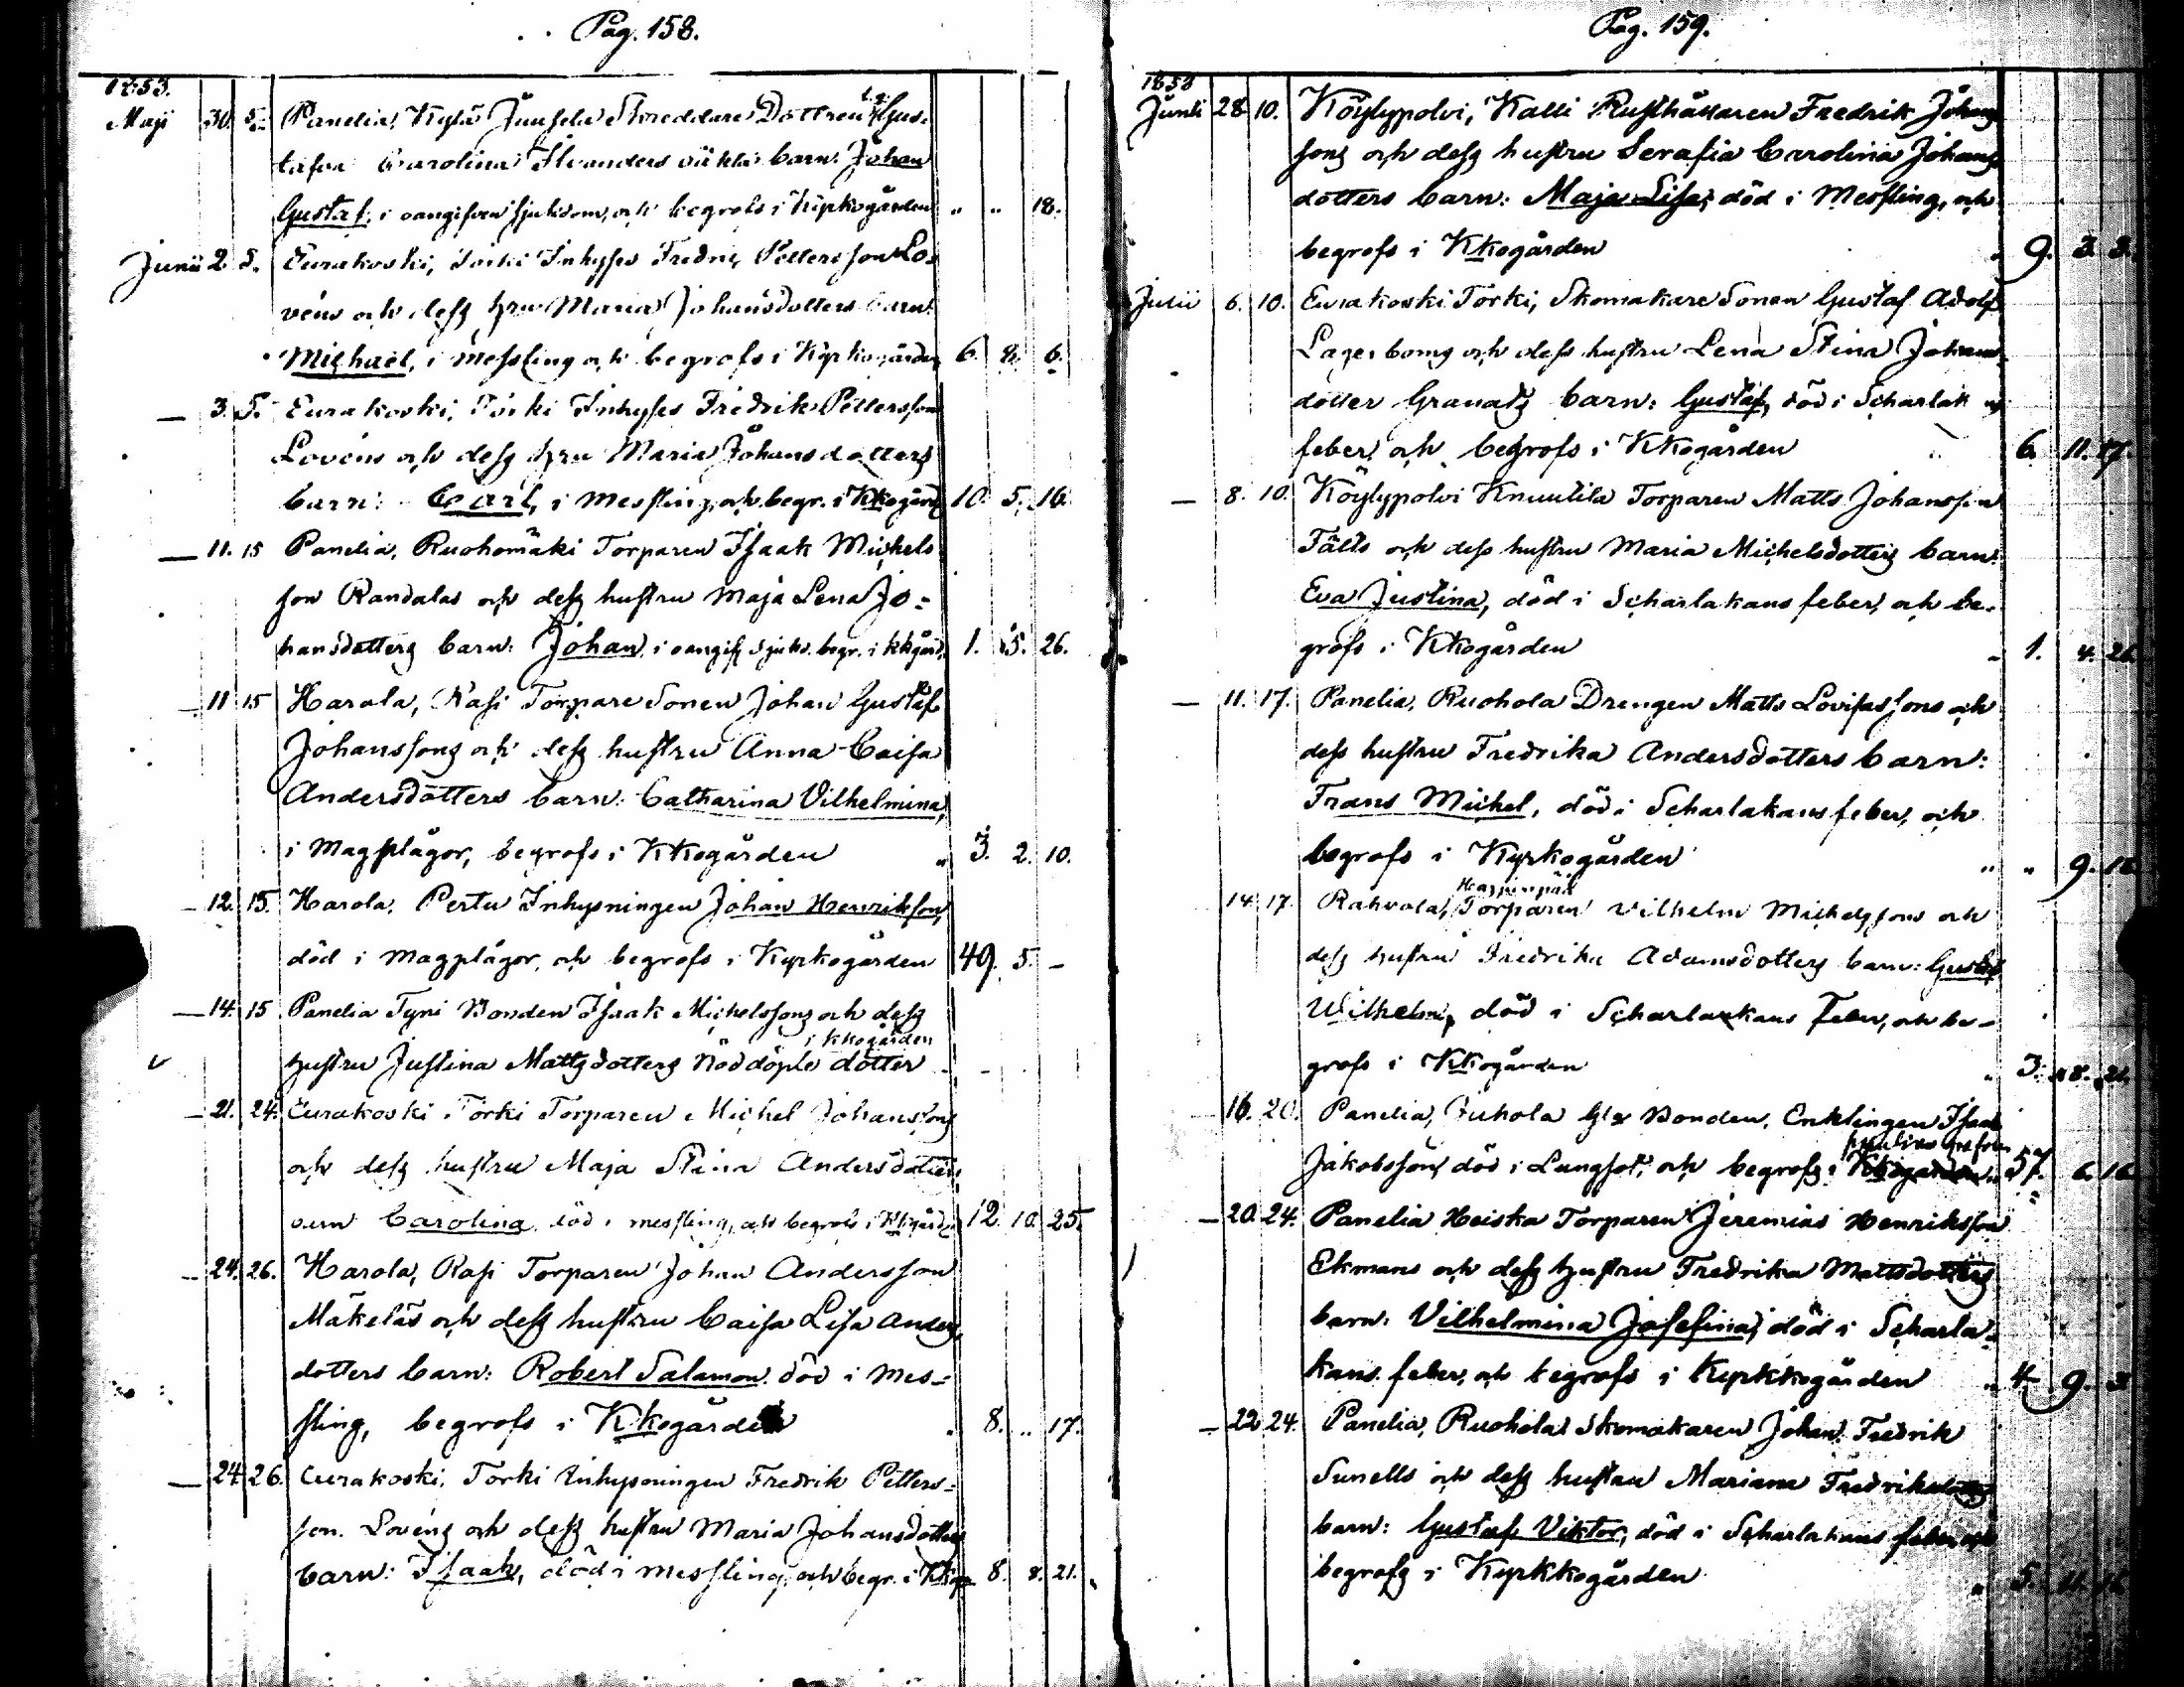 Pag. 158.
1853.
Maji 30. 5. Panelia, Kylä Juusela Skreddare Dottren Gus-
tafva Carolina Ilvanders oäkta barn: Johan
Gustaf, i oangifven sjukdom, och begrofs i Kyrkogården „ „ 18.
Junii 2. 5. Eurakoski, Torki Inhyses Fredric Pettersson Lo-
véns och dess hru Maria Johansdotters barn:
Michael, i Messling och begrofs i Kyrkogården 6. 8. 6.
— 3. 5. Eurakoski, Torki Inhyses Fredrik Pettersson
Lovéns och dess hru Maria Johansdotters
barn: Carl, i Messling, och begr. i Kkogård 10. 5. 16.
— 11. 15 Panelia, Ruohomäki Torparen Isaak Michels
son Randalas och dess hustru Maja Lena Jo-
hansdotters barn: Johan i oangif. sjukd. begr. i kkgård. 1. 5. 26.
— 11 15 Harola, Rasi Torpare Sonen Johan Gustaf
Johanssons och dess hustru Anna Caisa
Andersdotters barn: Catharina Vilhelmina,
i Magplågor, begrofs i Kkogården „ 3. 2. 10.
— 12. 15. Harola, Pertu Inhysningen Johan Henriksson,
död i Magplågor, och begrofs i Kyrkogården 49. 5. —
— 14. 15 Panelia Tyni Bonden Isaak Michelssons och dess
i kkogården
hustru Justina Mattsdotters Nöddöpte dotter
— 21. 24. Eurakoski Torki Torparen Michel Johanssons
och dess hustru Maja Stina Andersdotters
barn Carolina död i messling, och begrofs i Kkgården 12. 10. 25.
— 24. 26. Harola, Rasi Torparen Johan Andersson
Mäkeläs och dess hustru Caisa Lisa Anders
dotters barn: Robert Salamon död i Mes-
sling, begrofs i Kkogården „ 8. „ 17.
— 24. 26. Eurakoski, Torki Inhysningen Fredrik Petters-
son Lovéns och dess hustru Maria Johansdotters
barn: Isaak, död i messling och begr. i Kkg. 8. 8. 21.
Pag. 159.
1853
Junii 28. 10. Köylypolvi, Kalli Rusthållaren Fredrik Johans
sons och dess hustru Serafia Carolina Johans
dotters barn: Maja Lisa, död i Messling, och
begrofs i Kkogården „ 9. 3. 3.
Julii 6. 10. Eurakoski Torki, Skomakare Sonen Gustaf Adolf
Lagerboms och dess hustru Lena Stina Johans-
dotter Granats barn: Gustaf, död i Scharlak
feber, och begrofs i Kkogården 6. 11. 17.
— 8. 10. Köylypolvi Knuutila Torparen Matts Johansson
Fälts och dess hustru Maria Michelsdotters barn:
Eva Justina, död i Scharlakans feber, och be-
grofs i Kkogården „ 1. 4. 26.
— 11. 17. Panelia, Ruohola Drengen Matts Lovisassons och
dess hustru Fredrika Andersdotters barn:
Frans Michel, död i Scharlakans feber, och
begrofs i Kyrkogården „ „ 9.
14. 17. Rahvola, Torparen Vilhelm Michelssons och
dess hustru Fredrika Adamsdotters barn: Gustaf
Wilhelm, död i Scharlarkans Feber, och be-
grofs i Kkogården „ 3. 8. 21.
16. 20. Panelia, Juhola Bonden, Enklingen Isaak
Jakobsson, död i Lungsot, och begrofs i Kkogården 57. 6. 16
— 20. 24. Panelia Heiska Torparen Jeremias Henriksson
Ekmans och dess hustru Fredrika Mattsdotters
barn: Vilhelmina Josefina, död i Scharla-
kans feber, och begrofs i Kyrkkogården „ 4. 9.
— 22 24. Panelia, Ruohola Skomakaren Johan Fredrik
Sunells och dess hustru Mariana Fredriksdotters
barn: Gustaf Viktor, död i Scharlakans feber, och
begrofs i Kyrkkogården „ 5. 11.